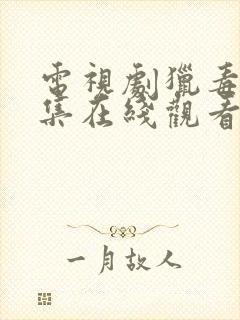 電視劇獵毒
集在綫觀看
一月故人